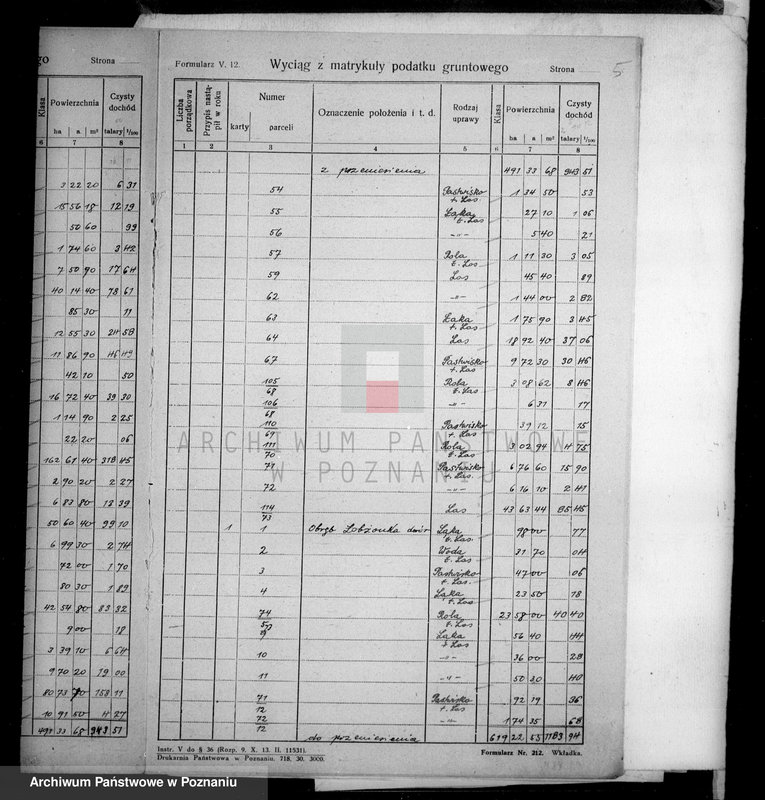 go Strona
Klasa Powierzchnia Czysty dochód
ha a m² talary 1/100
6 7 8
3 22 20 6 31
15 56 18 12 19
50 60 99
1 74 60 3 42
7 50 90 17 64
40 14 40 78 61
85 30 11
12 55 30 24 58
11 86 90 45 49
42 10 50
16 72 40 39 30
1 14 90 2 25
22 20 06
162 61 40 318 45
2 90 20 2 27
6 83 80 13 39
50 60 40 99 10
6 99 30 2 74
72 00 1 70
80 30 1 89
42 54 80 83 32
9 00 18
3 39 10 6 64
9 70 20 19 00
80 73 70 153 11
10 91 50 4 27
491 33 68 943 51
Formularz V. 12. Wyciąg z matrykuły podatku gruntowego Strona 5
Liczba porządkowa Przypis nastąpił w roku Numer Oznaczenie położenia i t. d. Rodzaj uprawy Klasa Powierzchnia Czysty dochód
karty parceli ha a m² talary 1/100
1 2 3 4 5 6 7 8
z przeniesienia 491 33 68 943 51
54 Pastwisko t. Las 1 34 50 53
55 Łąka t. Las 27 10 1 06
56 -"- 5 40 21
57 Rola t. Las 1 11 30 3 05
59 Las 45 40 89
62 -"- 1 44 00 2 82
63 Łąka t. Las 1 75 90 3 45
64 Las 18 92 40 37 06
67 Pastwisko t. Las 9 72 30 30 46
105/68 Rola t. Las 3 08 62 8 46
106/68 -"- 6 31 17
110/69 Pastwisko t. Las 39 12 15
111/70 Rola t. Las 3 02 94 4 75
71 Pastwisko t. Las 6 76 60 15 90
72 -"- 6 16 10 2 41
114/73 Las 43 63 44 85 45
1 1 Obręb Łobżonka dwór Łąka t. Las 98 00 77
2 Woda t. Las 31 70 04
3 Pastwisko t. Las 47 00 06
4 Łąka t. Las 23 50 18
74 Rola t. Las 23 58 00 40 40
9 Łąka t. Las 56 40 44
10 -"- 36 00 28
11 -"- 50 30 40
71/12 Pastwisko t. Las 92 19 36
72/12 -"- 1 74 35 68
do przeniesienia 619 22 55 1183 94
Instr. V do § 36 (Rozp. 9. X. 13. II. 11531).
Drukarnia Państwowa w Poznaniu. 718. 30. 3000.
Formularz Nr. 212. Wkładka.
ARCHIWUM PAŃSTWOWE
W POZNANIU
Archiwum Państwowe w Poznaniu